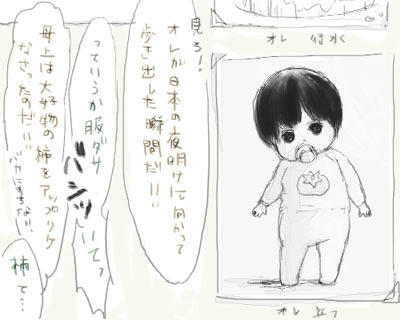 オレ 行水
見ろ!
オレが日本の夜明けに向かって
歩き出した瞬間だ!!
っていうか服ダサ
バシッ
いてっ
母上は大好物の柿をアップリケ
なさったのだ!!
バカにするな!!
柿て…
オレ 立つ